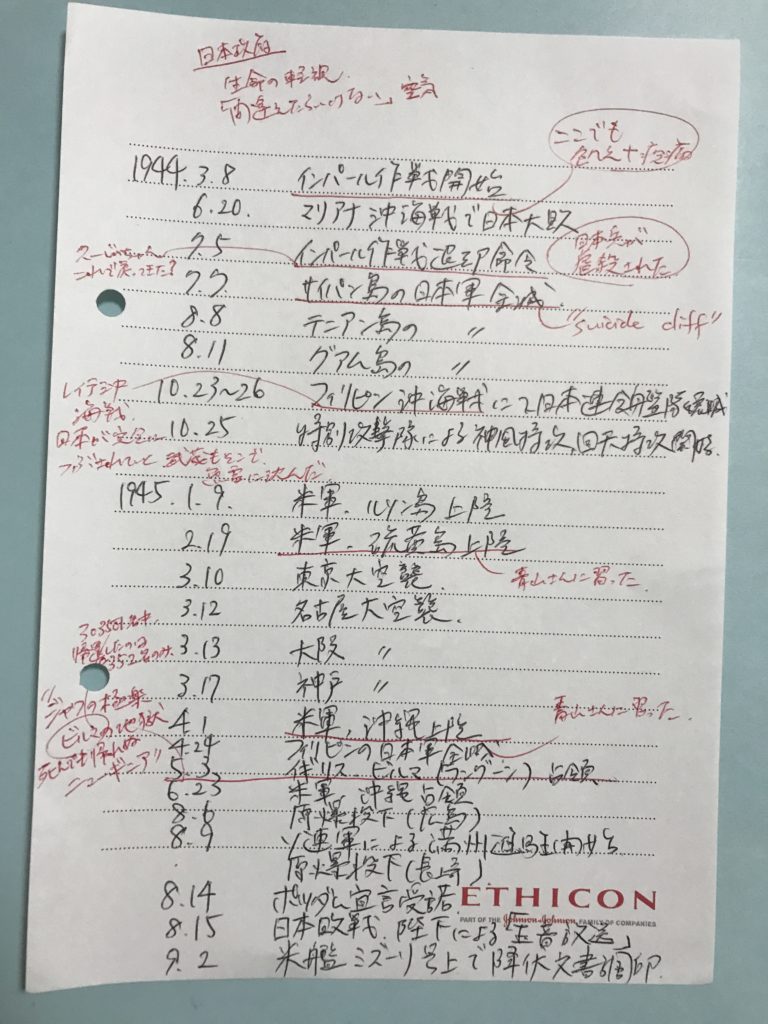 日本政府
生命の軽視
「間違えたらいけない」空気
ここでも
飢え+疫病
1944. 3.8 インパール作戦開始
6.20. マリアナ沖海戦で日本大敗
日本兵が
虐殺された
7.5 インパール作戦退却命令
これで戻ってきた?
7.7 サイパン島の日本軍全滅.
"suicide cliff"
8.8 テニアン島の 〃
8.11 グアム島の 〃
レイテ沖
海戦.
日本が完全に
つぶされたひと
武蔵もここで
に沈んだ
10.23~26 フィリピン沖海戦にて日本連合艦隊壊滅
10.25 特別攻撃隊による神風特攻,回天特攻開始.
1945. 1.9. 米軍.ルソン島上陸
2.19 米軍.硫黄島上陸
青山さんに習った.
3.10 東京大空襲.
3.12 名古屋大空襲.
3.13 大阪 〃
3.17 神戸 〃
帰還したのは
のみ
"ジャワの極楽
ビルマの地獄
死んでも帰れぬ
ニューギニア"
青山さんに習った.
4.1 米軍.沖縄上陸
4.24 フィリピンの日本軍全滅
5.3 イギリス ビルマ(ラングーン)占領
6.23 米軍.沖縄占領
8.6 原爆投下(広島)
8.9 ソ連軍による満州進駐開始
. 原爆投下(長崎)
8.14 ポツダム宣言受諾
8.15 日本敗戦.陛下による「玉音放送」
9.2 米艦ミズーリ号上で降伏文書調印.
ETHICON
PART OF THE Johnson & Johnson FAMILY OF COMPANIES